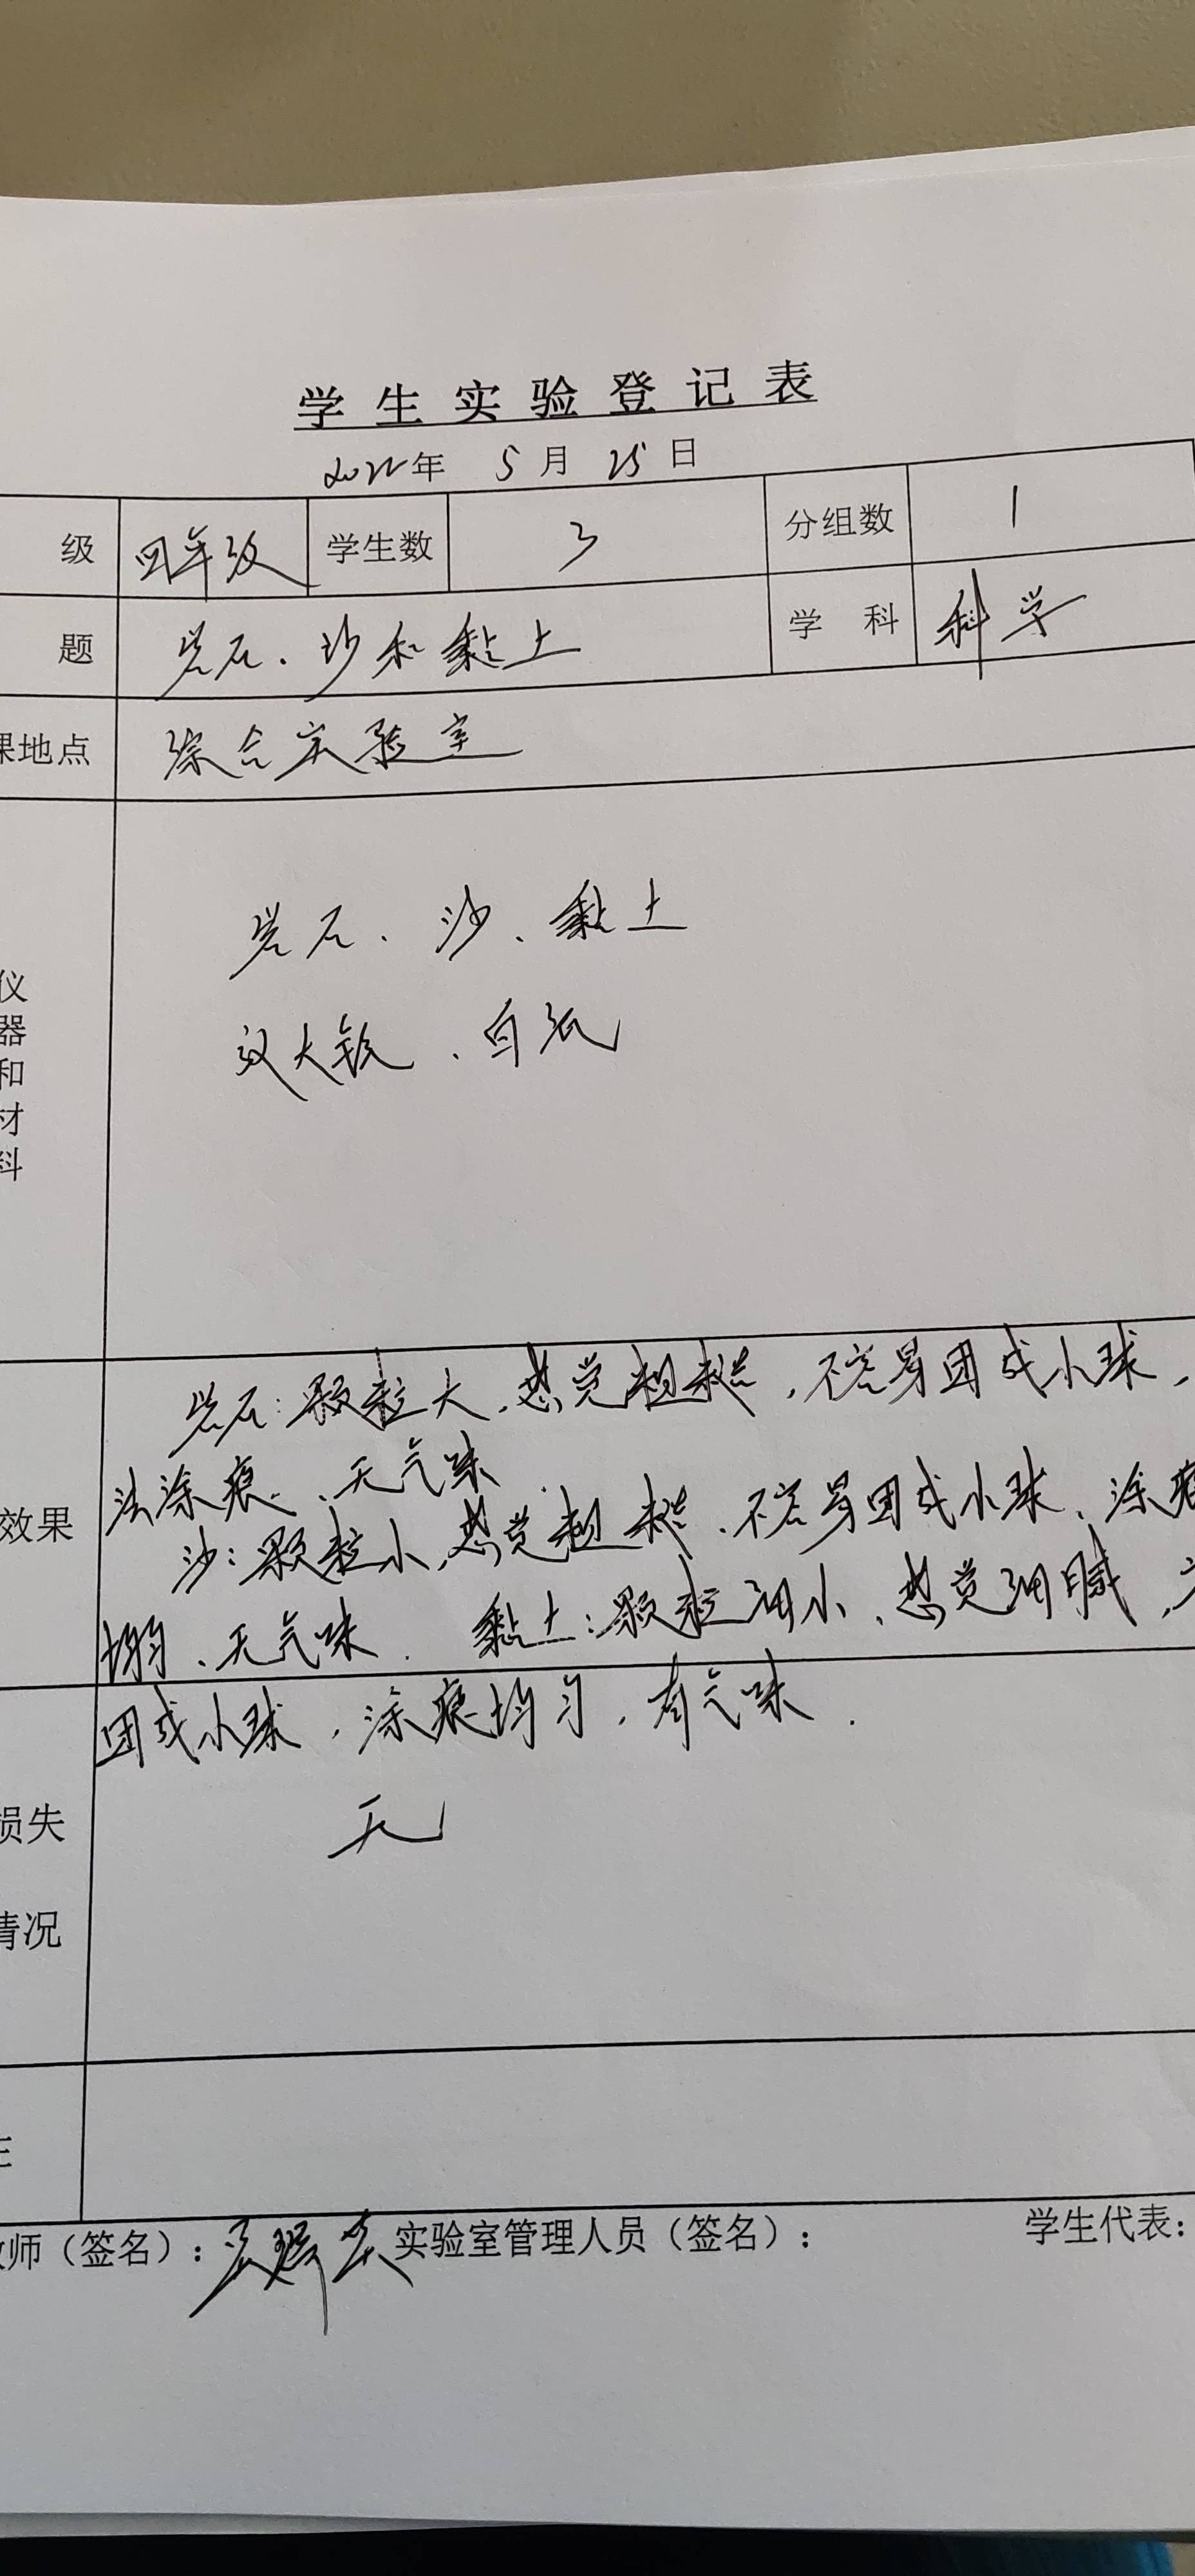 学生实验登记表
2022年 5月 25日
级 四年级 学生数 3 分组数 1
题 岩石、沙和黏土 学 科 科学
课地点 综合实验室
仪
器
和
材
料
岩石、沙、黏土
放大镜、白纸
岩石:颗粒大、感觉粗糙,不容易团成小球,
法涂痕、无气味.
效果
沙:颗粒小、感觉粗糙、不容易团成小球、涂痕
均匀、无气味. 黏土:颗粒细小、感觉细腻,
团成小球,涂痕均匀,有气味.
损失
无
情况
教师(签名): 实验室管理人员(签名): 学生代表: